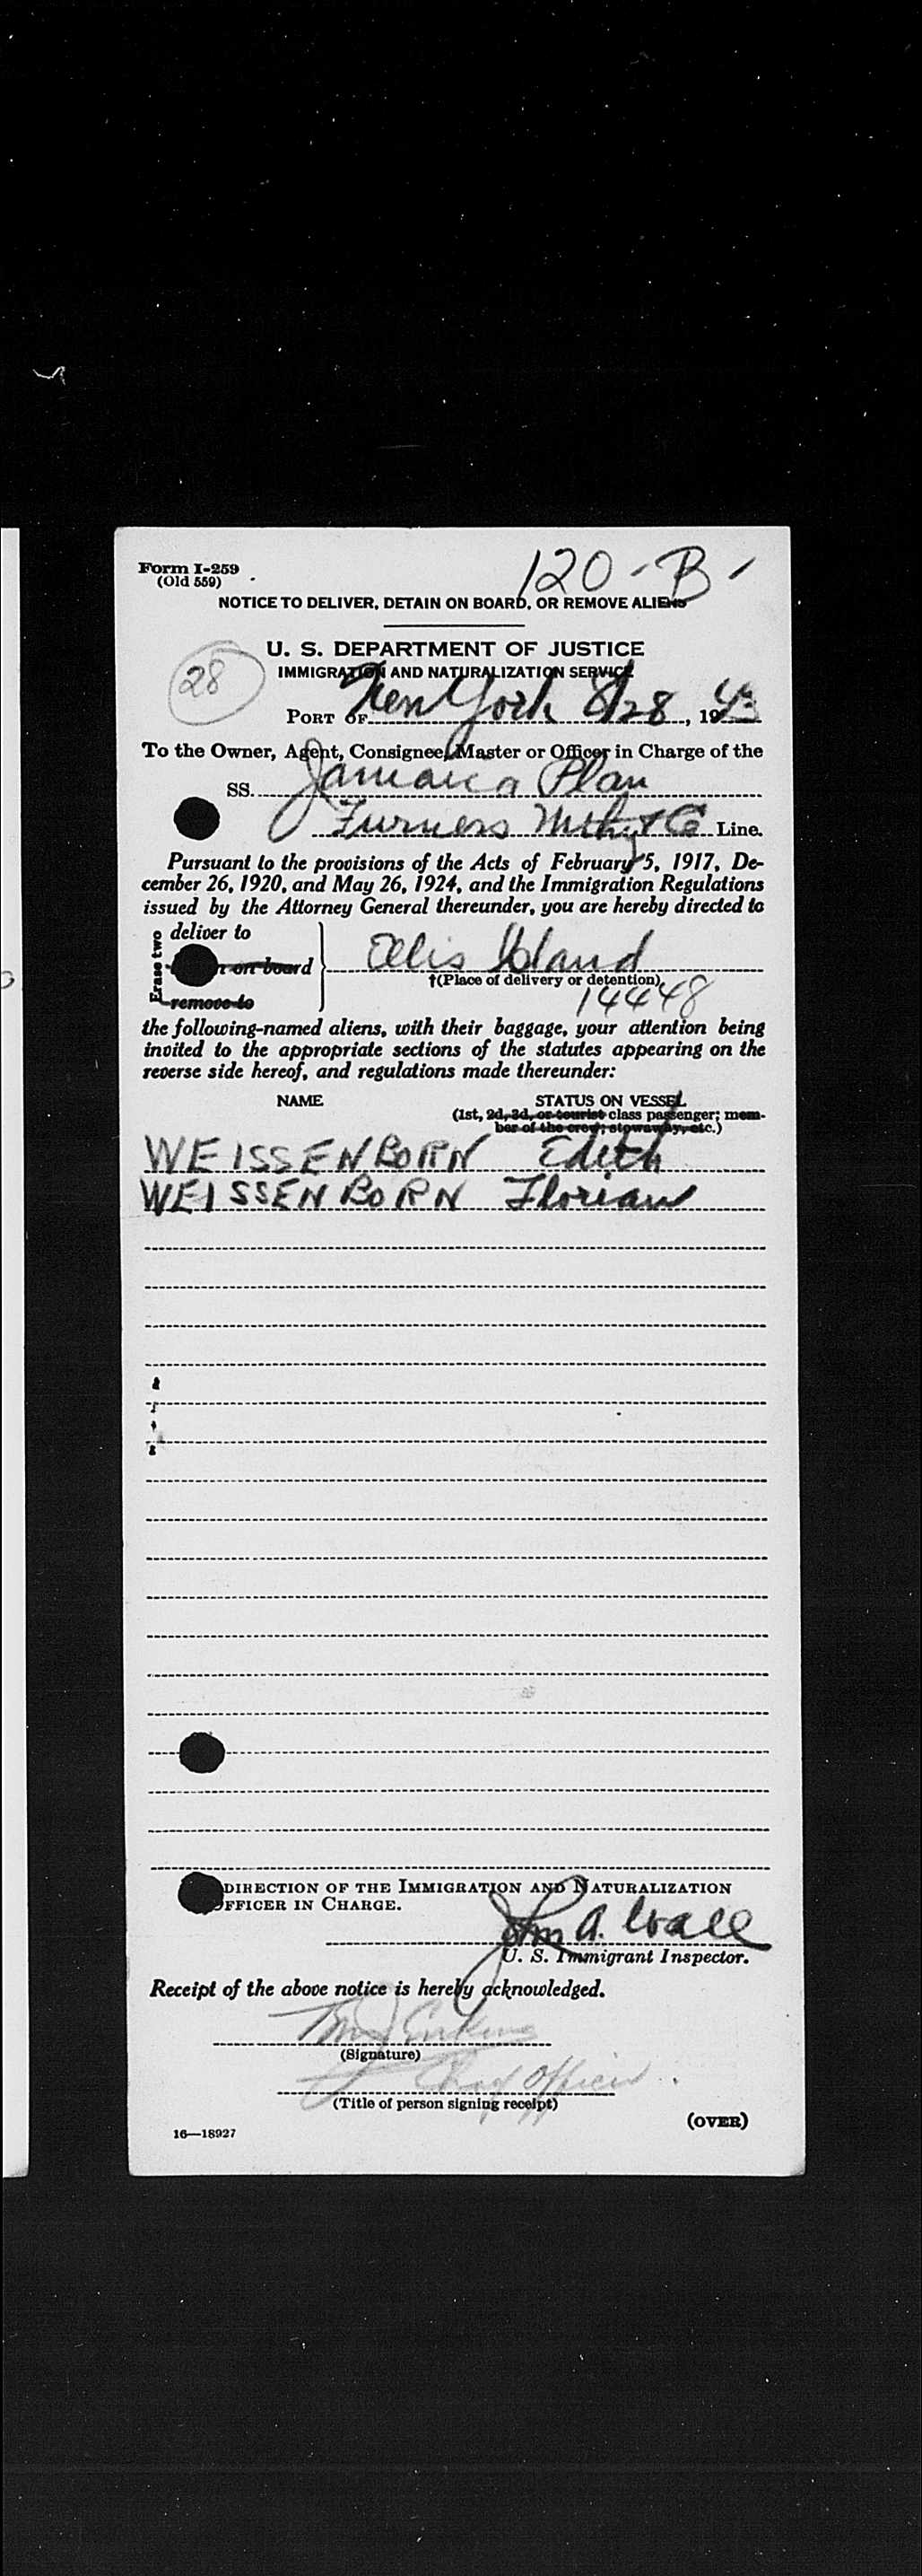 Form I-259
(Old 559)
120-B-
NOTICE TO DELIVER, DETAIN ON BOARD, OR REMOVE ALIENS
U. S. DEPARTMENT OF JUSTICE
IMMIGRATION AND NATURALIZATION SERVICE
28
PORT OF New York 8/28, 1943
To the Owner, Agent, Consignee, Master or Officer in Charge of the
SS. Jamaica Plan
Furness Withy & Co Line.
Pursuant to the provisions of the Acts of February 5, 1917, De-
cember 26, 1920, and May 26, 1924, and the Immigration Regulations
issued by the Attorney General thereunder, you are hereby directed to
Erase two
deliver to
on board
remove to
Ellis Island
†(Place of delivery or detention)
14448
the following-named aliens, with their baggage, your attention being
invited to the appropriate sections of the statutes appearing on the
reverse side hereof, and regulations made thereunder:
NAME STATUS ON VESSEL
(1st, 2d, 3d, or tourist class passenger; mem-
ber of the crew; stowaway, etc.)
WEISSENBORN Edith
WEISSENBORN Florian
DIRECTION OF THE IMMIGRATION AND NATURALIZATION
OFFICER IN CHARGE.
John A. Wall
U. S. Immigrant Inspector.
Receipt of the above notice is hereby acknowledged.
(Signature)
Chief Officer
(Title of person signing receipt)
(OVER)
16—18927